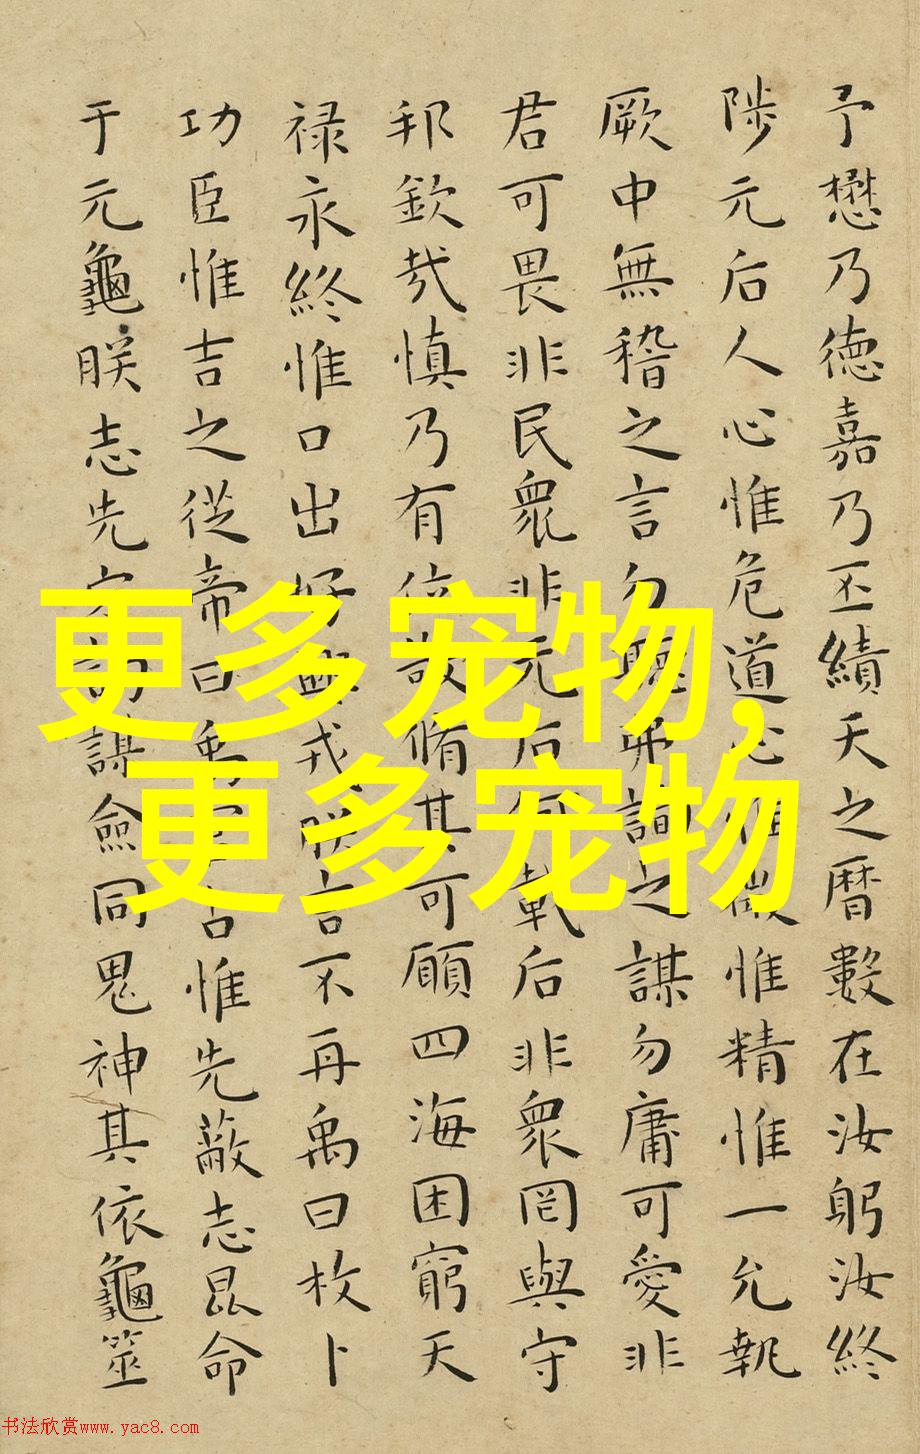 予懋乃德嘉乃丕績天之曆數在汝躬汝終
陟元后人心惟危道心惟微惟精惟一允執
厥中無稽之言勿聽弗詢之謀勿庸可愛非
君可畏非民衆非元后何戴后非衆罔與守
邦欽哉慎乃有位敬脩其可願四海困窮天
禄永終惟口出好興戎朕言不再禹曰枚卜
功臣惟吉之從帝曰禹官占惟先蔽志昆命
于元龜朕志先定詢謀僉同鬼神其依龜筮
更多宠物,
更多宠物
书法欣赏www.yac8.com